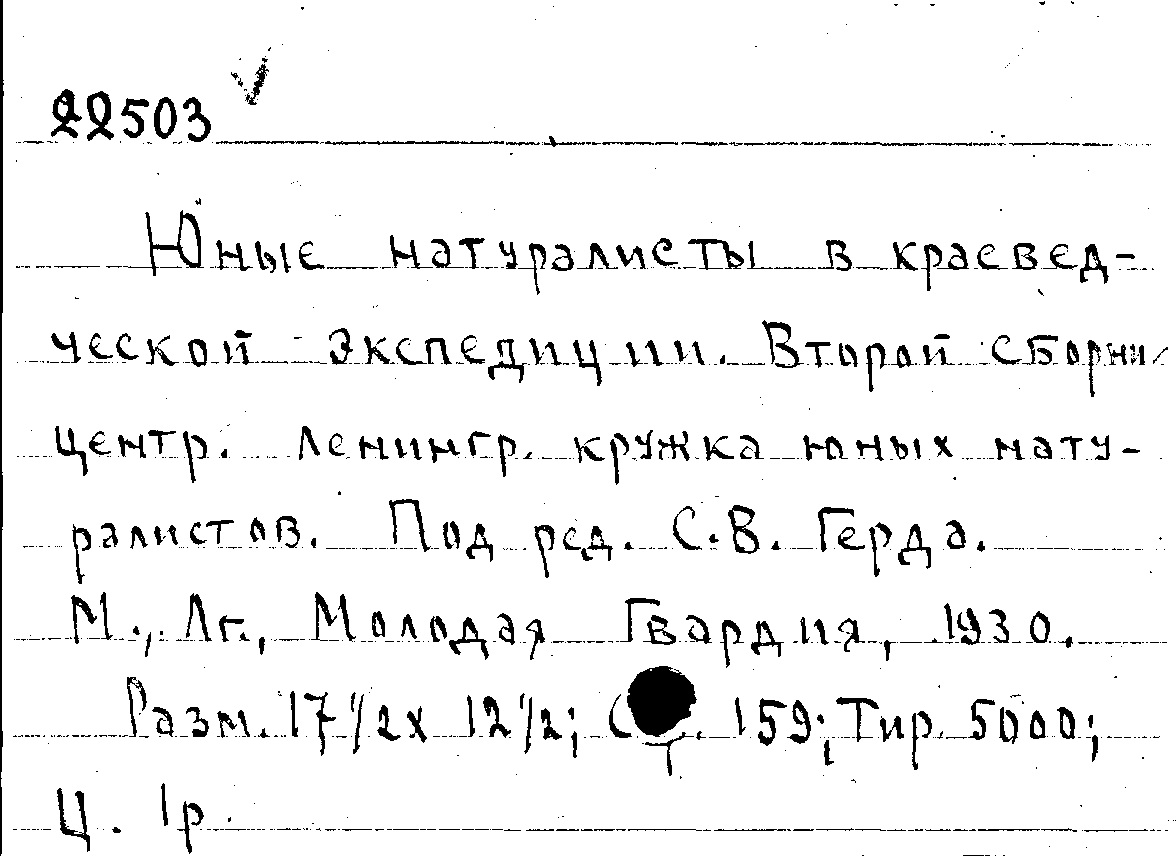 22503
Юные натуралисты в краевед-
ческой экспедиции. Второй сборни
центр. Ленингр. кружка юных нату-
ралистов. Под ред. С.В. Герда.
М., Лг., Молодая Гвардия, 1930.
Разм. 17 1/2 х 12 1/2; 159; Тир. 5000;
Ц. 1р.